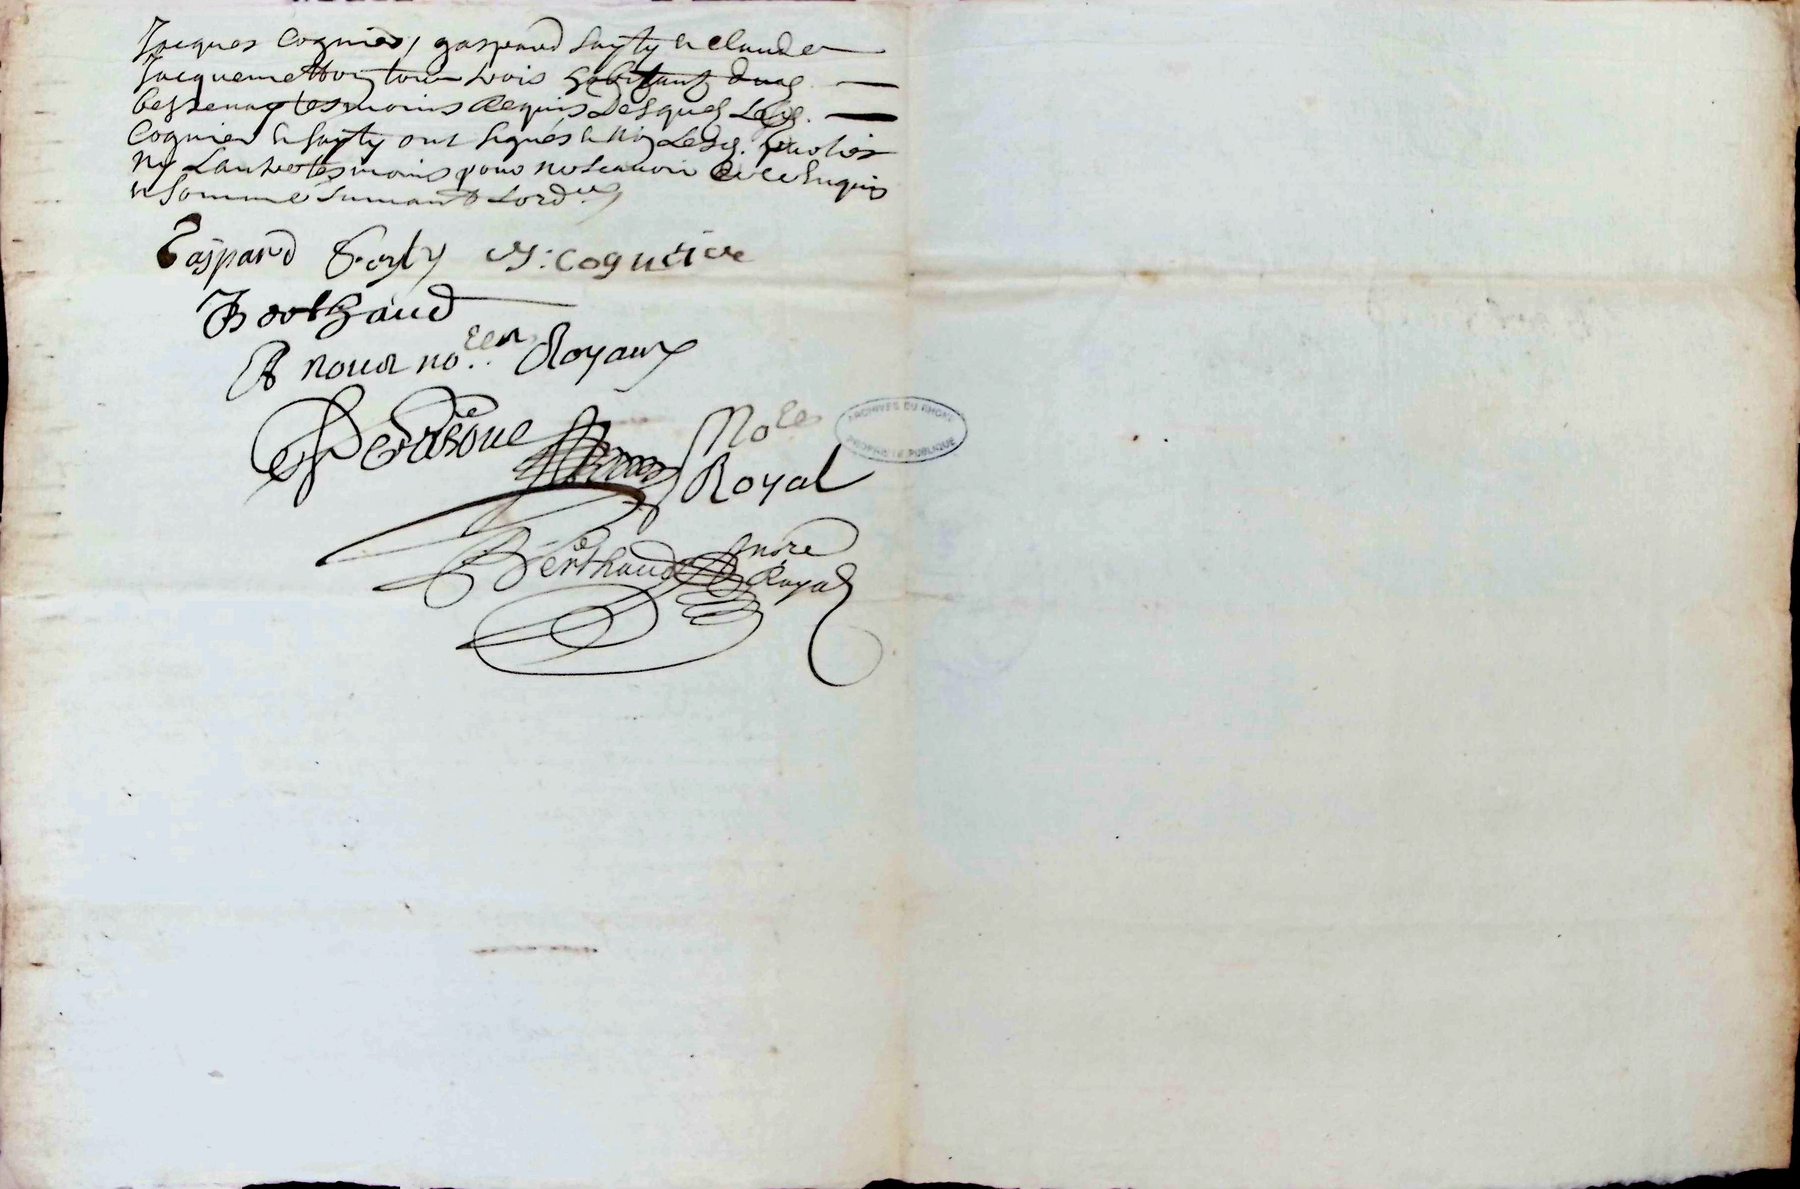 Jacques Cognier, gaspard sayty et claude
Jacquemetton tous trois habitans dud.
tesmoins Requis Desquels Led.
Cognier et sayty ont signés et non Led.
Ny L'autre tesmoins pour ne scavoir de ce Enquis
et sommé suivant Lord.ce
Gaspard J: Cognier
Berthaud
A nous no.res Royaux
No.re
Royal
ARCHIVES DU RHONE
PROPRIETE PUBLIQUE
Berthaud no.re
Royal